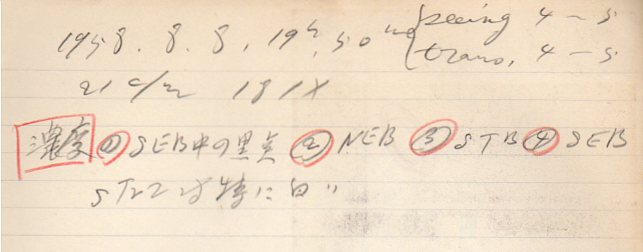 1958. 8. 8. 19h 50m seeing 4-5
trans. 4-5
21 c/m 181X
濃度 ① SEB中の黒点 ② NEB ③ STB ④ SEB
STrZは特に白い